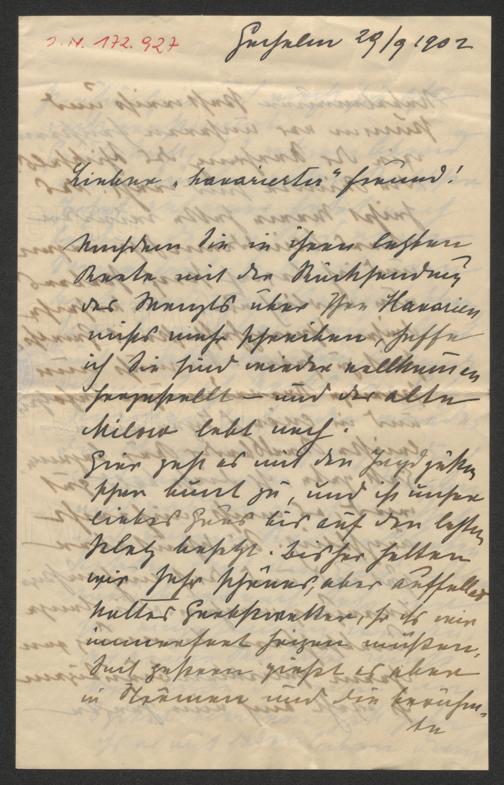 I.N. 172.927
29/9 1902
Lieber "havarierter" Freund!
Nachdem Sie in Ihrer letzten
Karte mit der Rücksendung
des über Ihre Havarien
nichts mehr schreiben, hoffe
ich Sie sind wieder vollkommen
hergestellt – und der alte
Milow lebt noch.
Hier geht es mit den Jagdgästen
schon bunt zu, und ist unser
liebes Haus bis auf den letzten
Platz besetzt. Bisher hatten
wir sehr schönes, aber auffallend
kaltes Herbstwetter, so daß wir
immerfort heizen müßen.
Seit gestern gießt es aber
in Strömen und die berühm-
ten